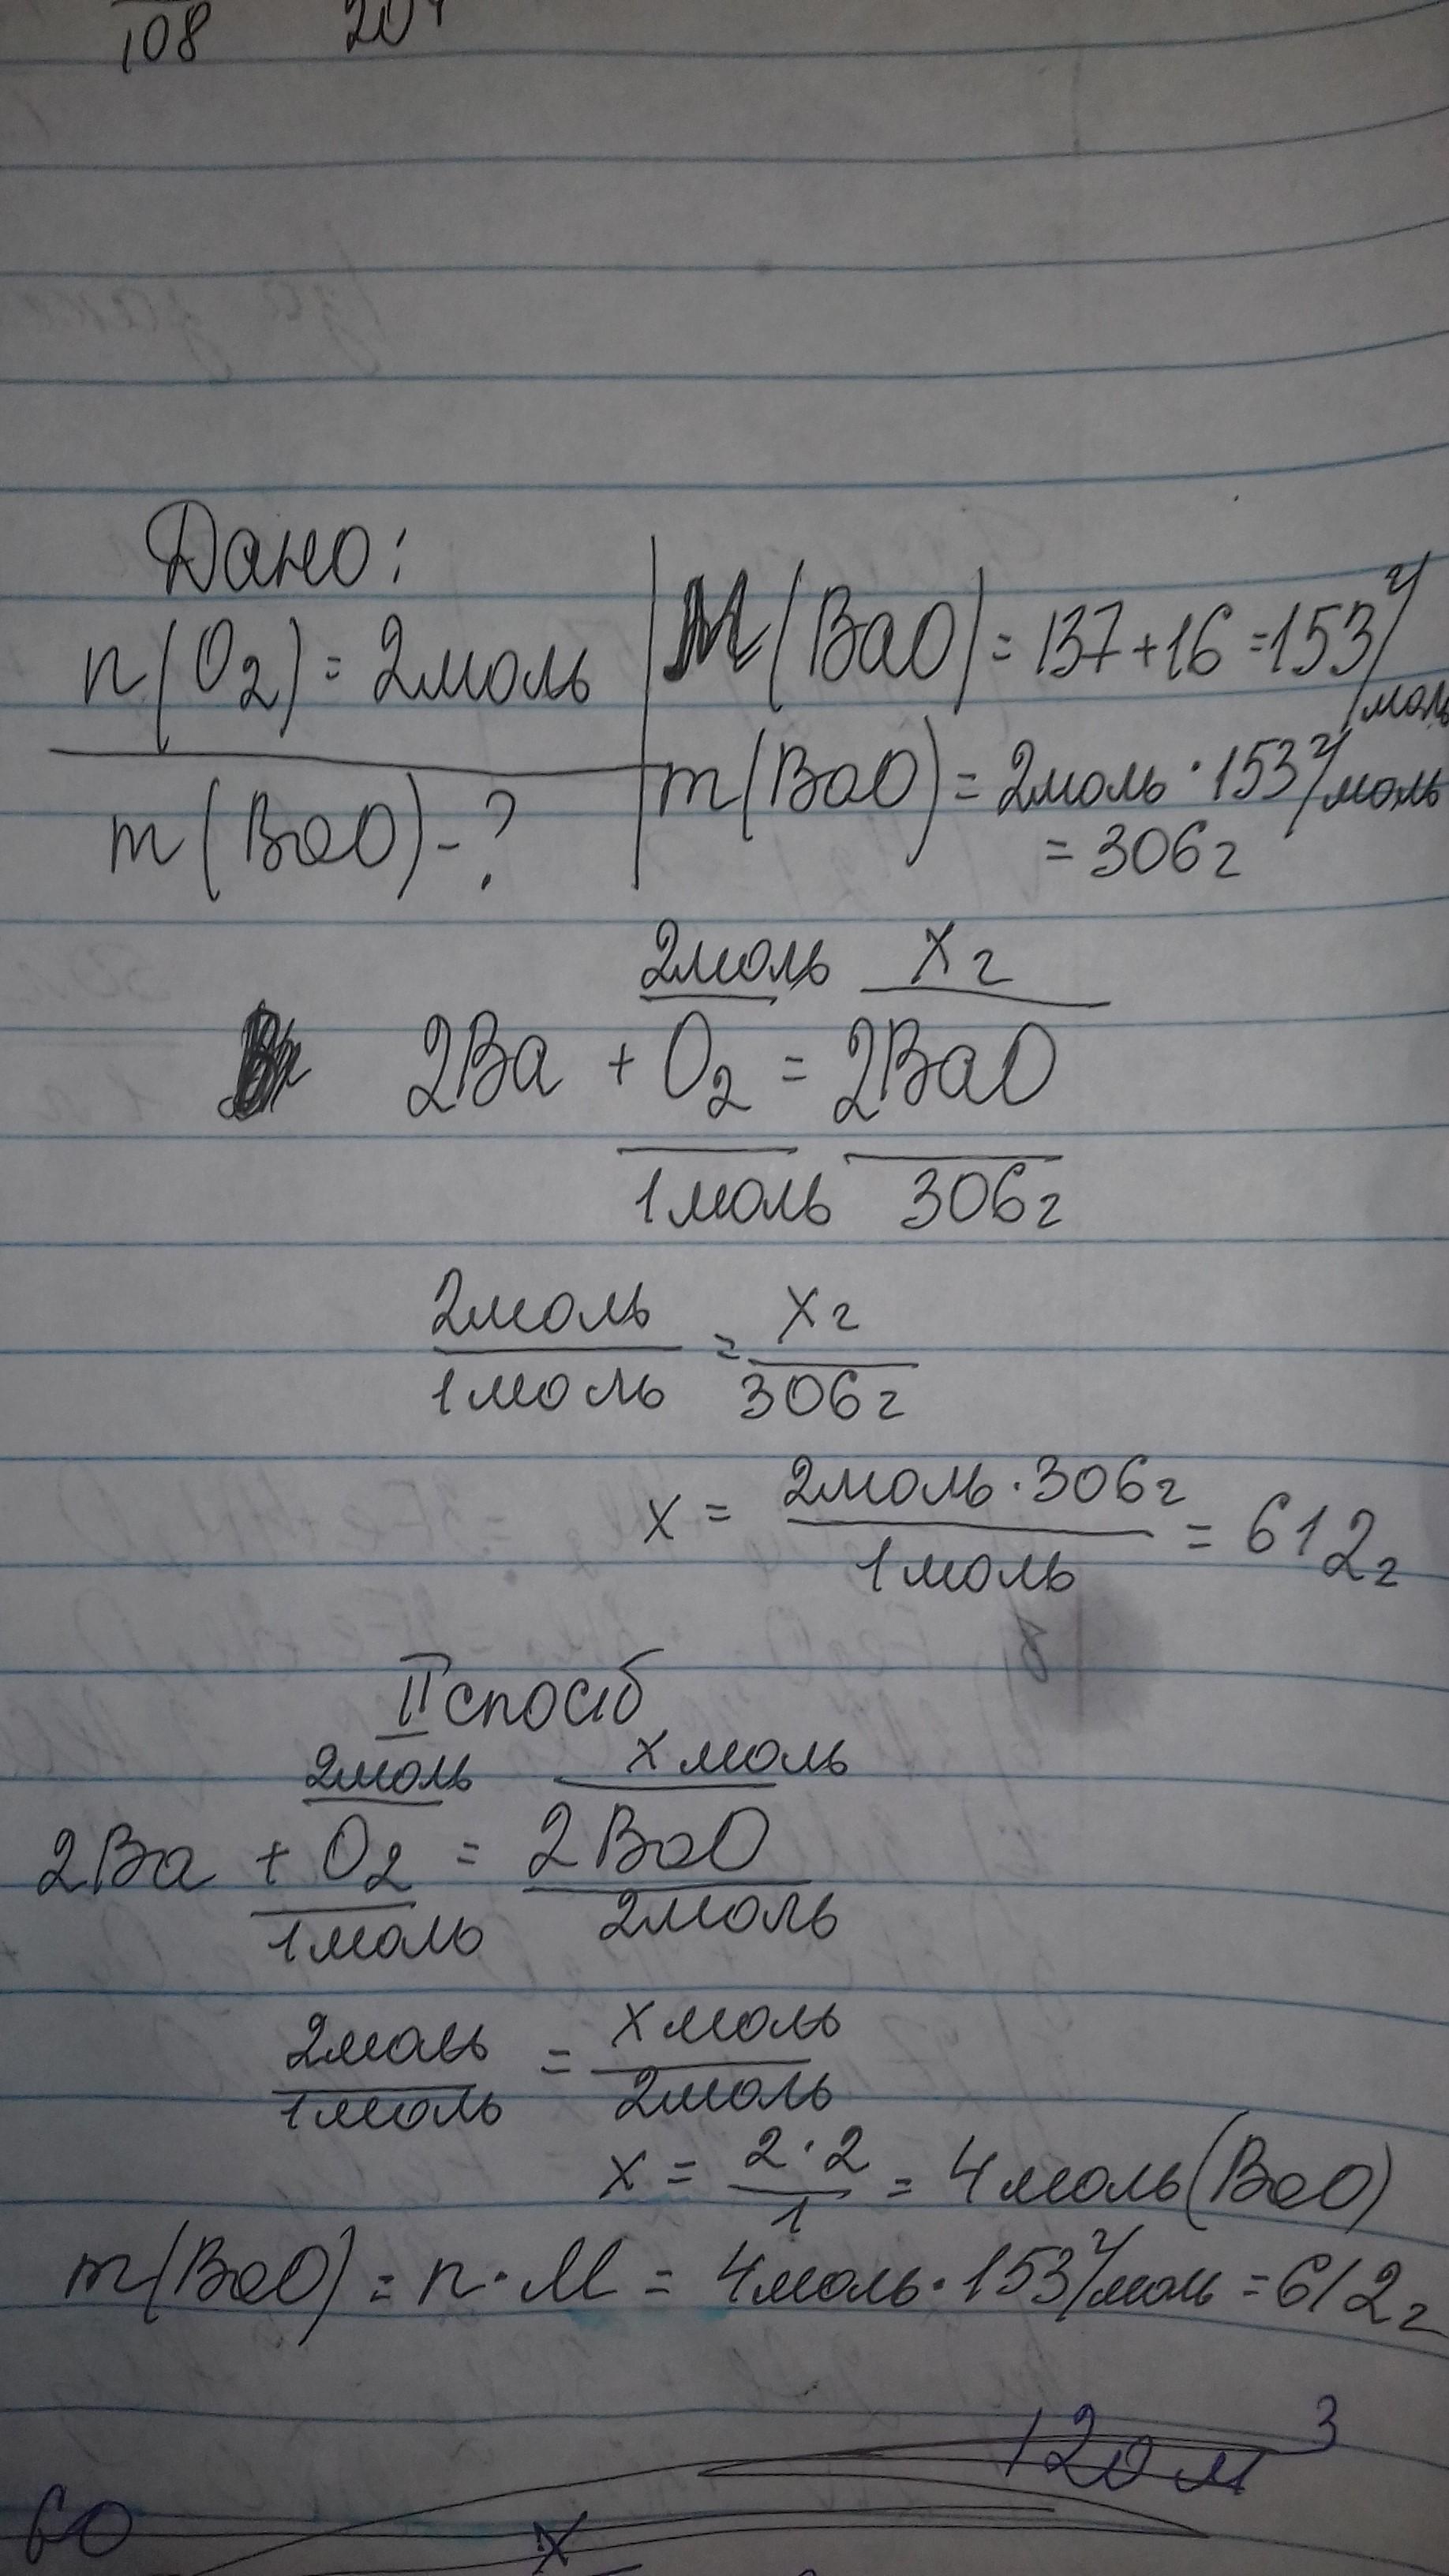 108
Дано:
n(O2) = 2моль
m(BaO) - ?
M(BaO) = 137+16 = 153 г/моль
m(BaO) = 2моль · 153 г/моль
= 306 г
2моль x г
2Ba + O2 = 2BaO
1моль 306 г
2моль/1моль = x г/306 г
x = 2моль · 306 г/1моль = 612 г
II спосіб
2моль x моль
2Ba + O2 = 2BaO
1моль 2моль
2моль/1моль = x моль/2моль
x = 2·2/1 = 4 моль (BaO)
m(BaO) = n · M = 4моль · 153 г/моль = 612 г
120 м³
60
x